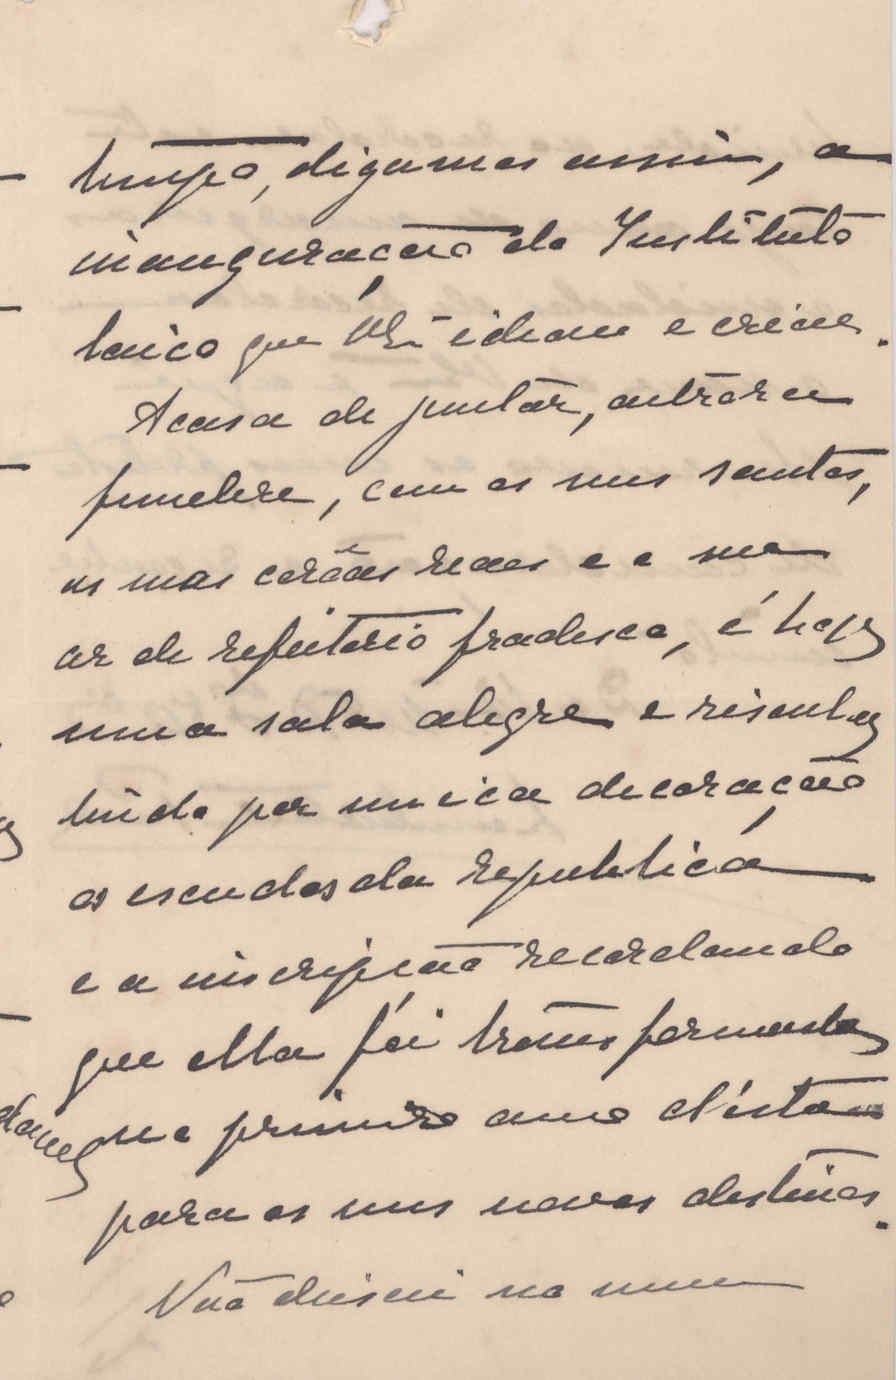 tempo, digamos assim, a
inauguração do Instituto
laico que V. Exª ideou e creou.
A casa de jantar, outrora
funebre, com os seus santos,
as suas corôas reaes e o seu
ar de refeitorio fradesco, é hoje
uma sala alegre e risonha
tendo por unica decoração
os escudos da republica
e a inscripção recordando
que ella foi transformada
no primeiro anno d'esta
para os seus novos destinos.
Não deixei no meu